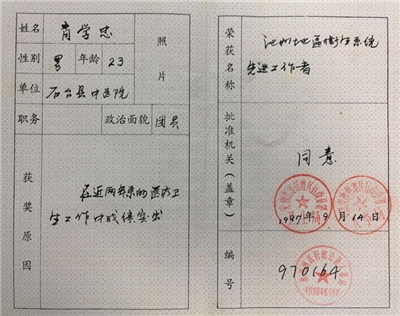 姓名 肖学忠
性别 男 年龄 23
照片
单位 石台县中医院
职务 政治面貌 团员
获奖原因
在近两年来的医疗卫
生工作中成绩突出
荣获名称
池州地区卫生系统
先进工作者
批准机关（盖章）
同意
1997年9月14日
编号
970164